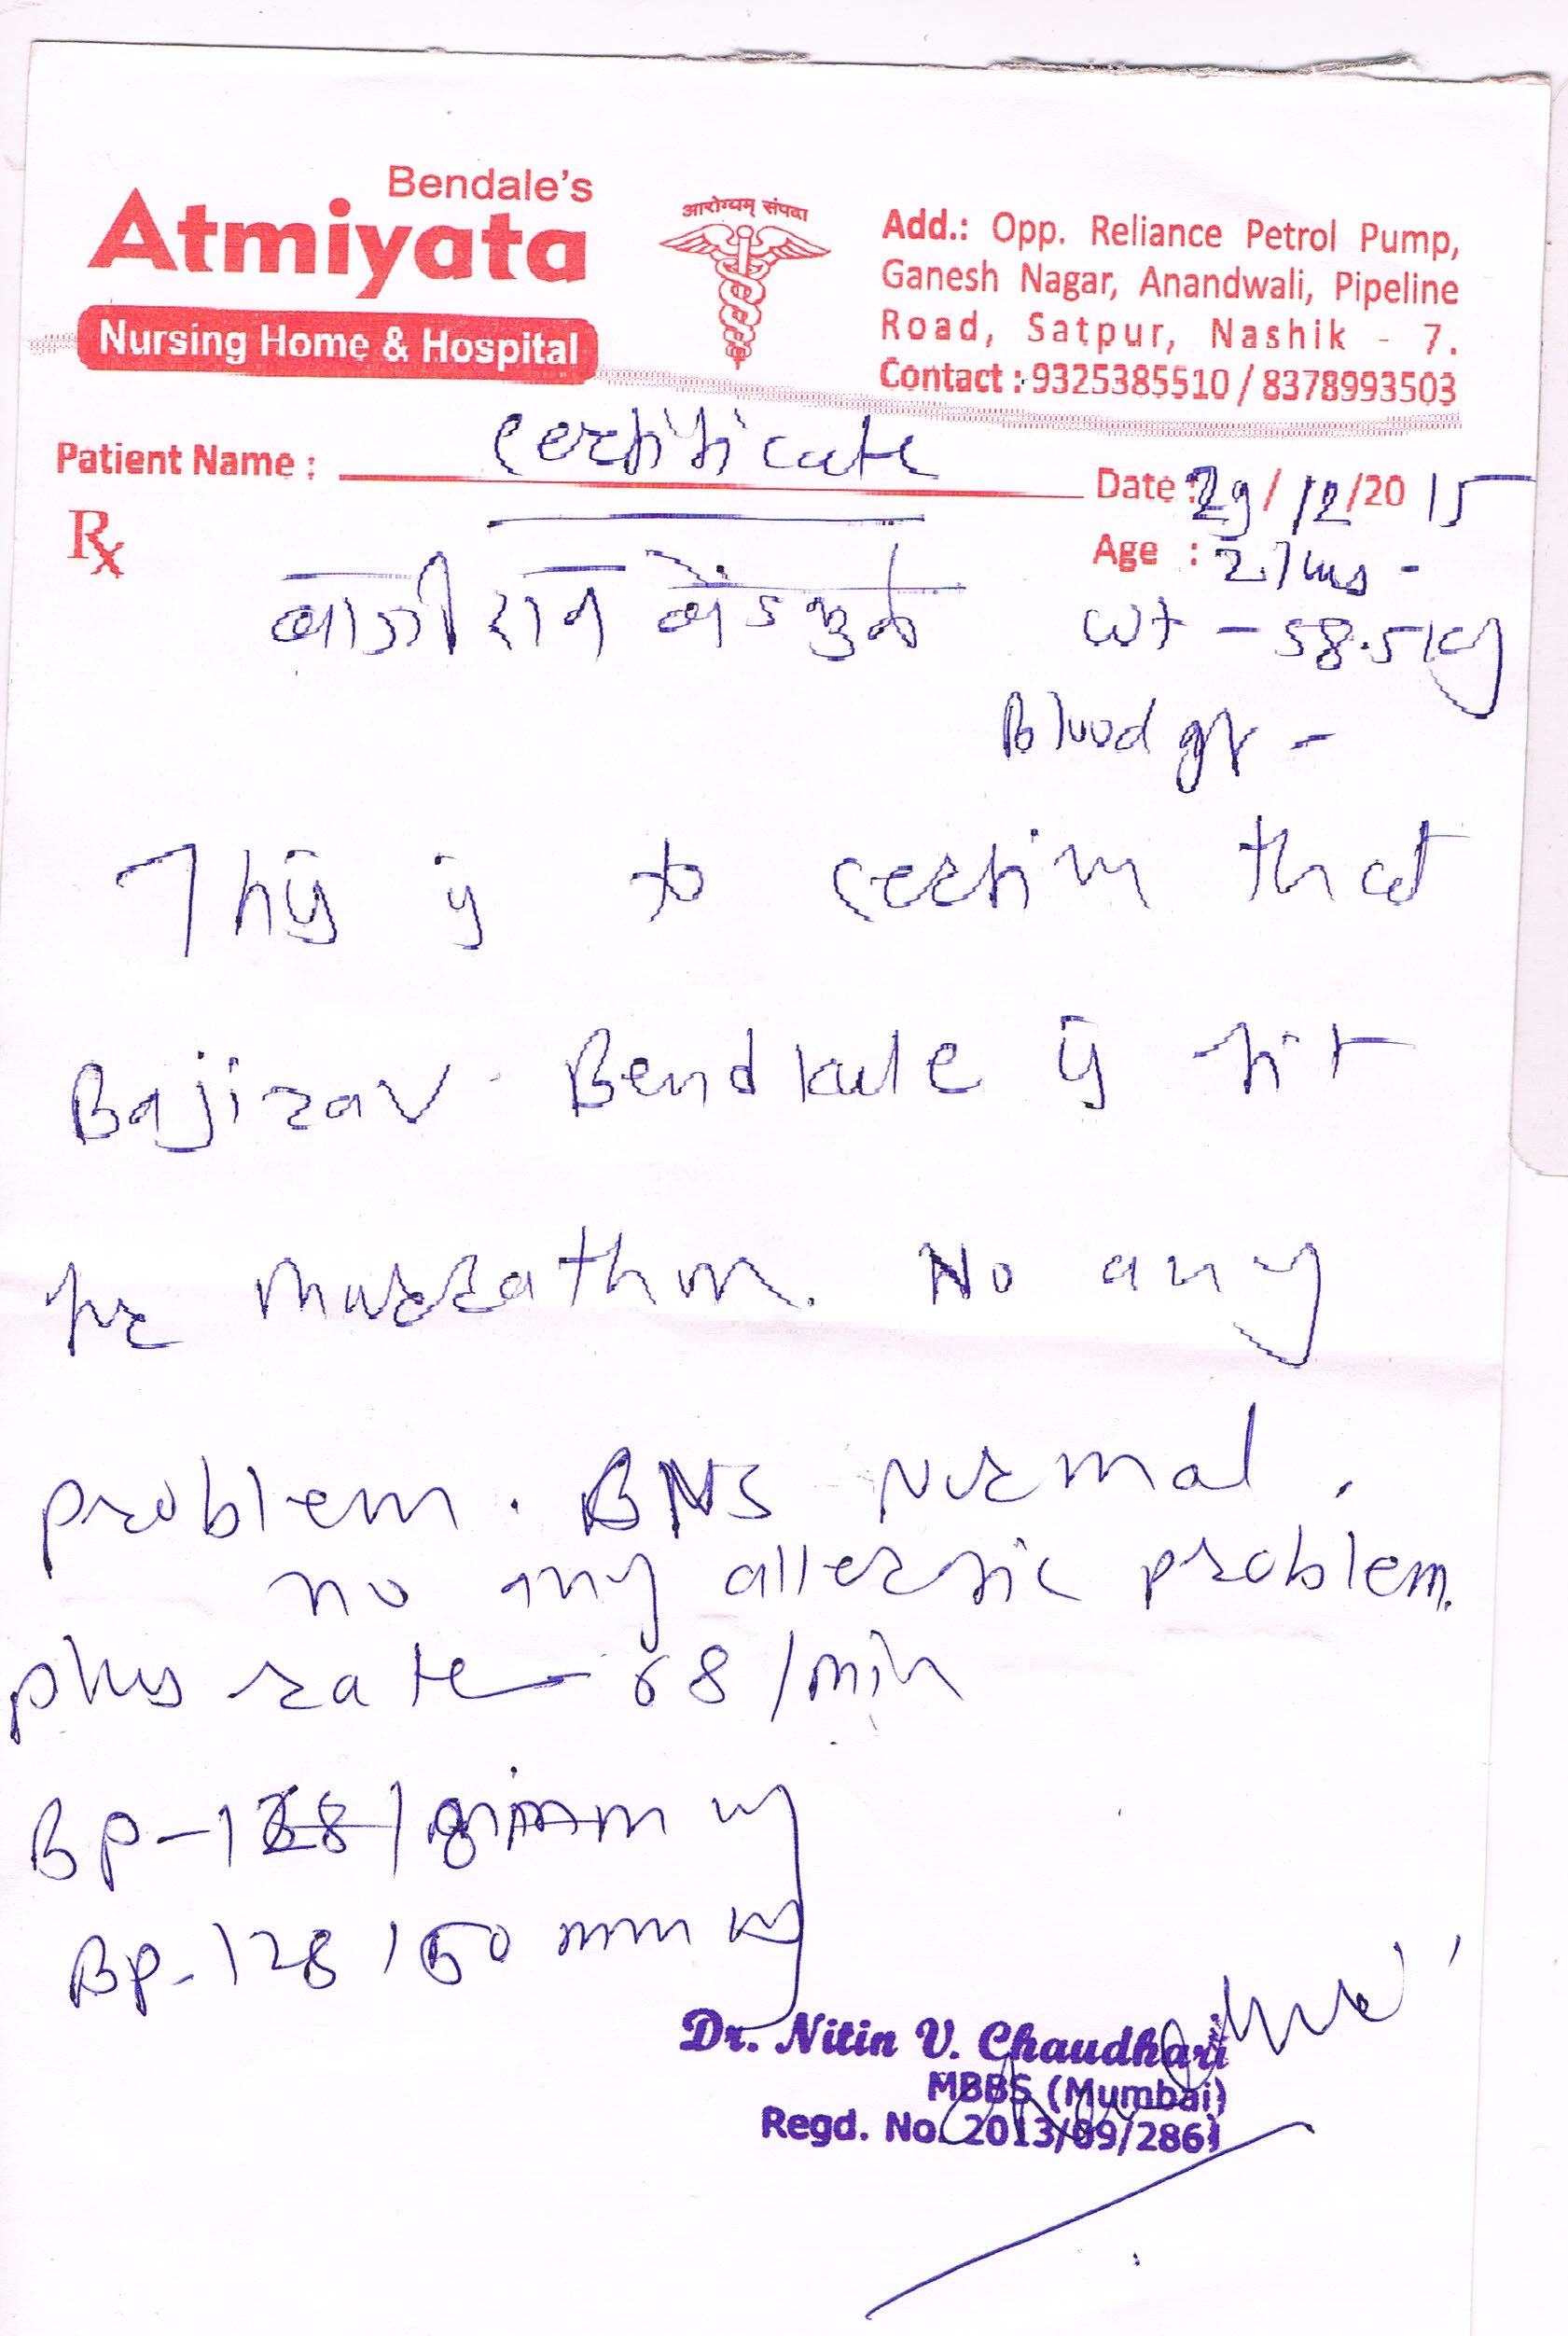 Bendale's
Atmiyata
Nursing Home & Hospital
आरोग्यम् संपदा
Add.: Opp. Reliance Petrol Pump,
Ganesh Nagar, Anandwali, Pipeline
Road, Satpur, Nashik - 7.
Contact : 9325385510 / 8378993503
Patient Name : Certificate
Date : 29/12/2015
Rx
Age :
बाजीराव बेंडकुळे
wt - 58.5 kg
Blood gr -
This is to certify that
Bajirav Bendkule is fit
for marrathon. No any
problem. BNS Normal.
no any allergic problem.
plus rate - 68 /min
BP-
BP-128 / mm Hg
Dr. Nitin V. Chaudhari
MBBS (Mumbai)
Regd. No. 2013/09/2861